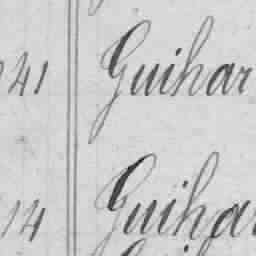 41 Guihar
14 Guihar